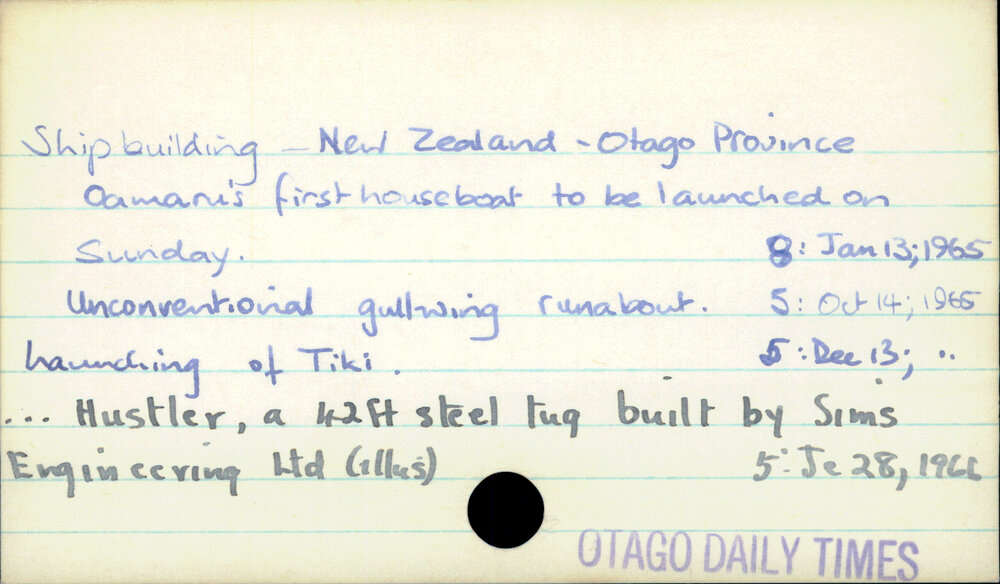 Shipbuilding - New Zealand - Otago Province
Oamaru's first houseboat to be launched on
Sunday. 8: Jan 13; 1965
Unconventional gullwing runabout. 5: Oct 14; 1965
Launching of Tiki. 5: Dec 13; ..
... Hustler, a 42ft steel tug built by Sims
Engineering Ltd (illus) 5: Je 28, 1966
OTAGO DAILY TIMES